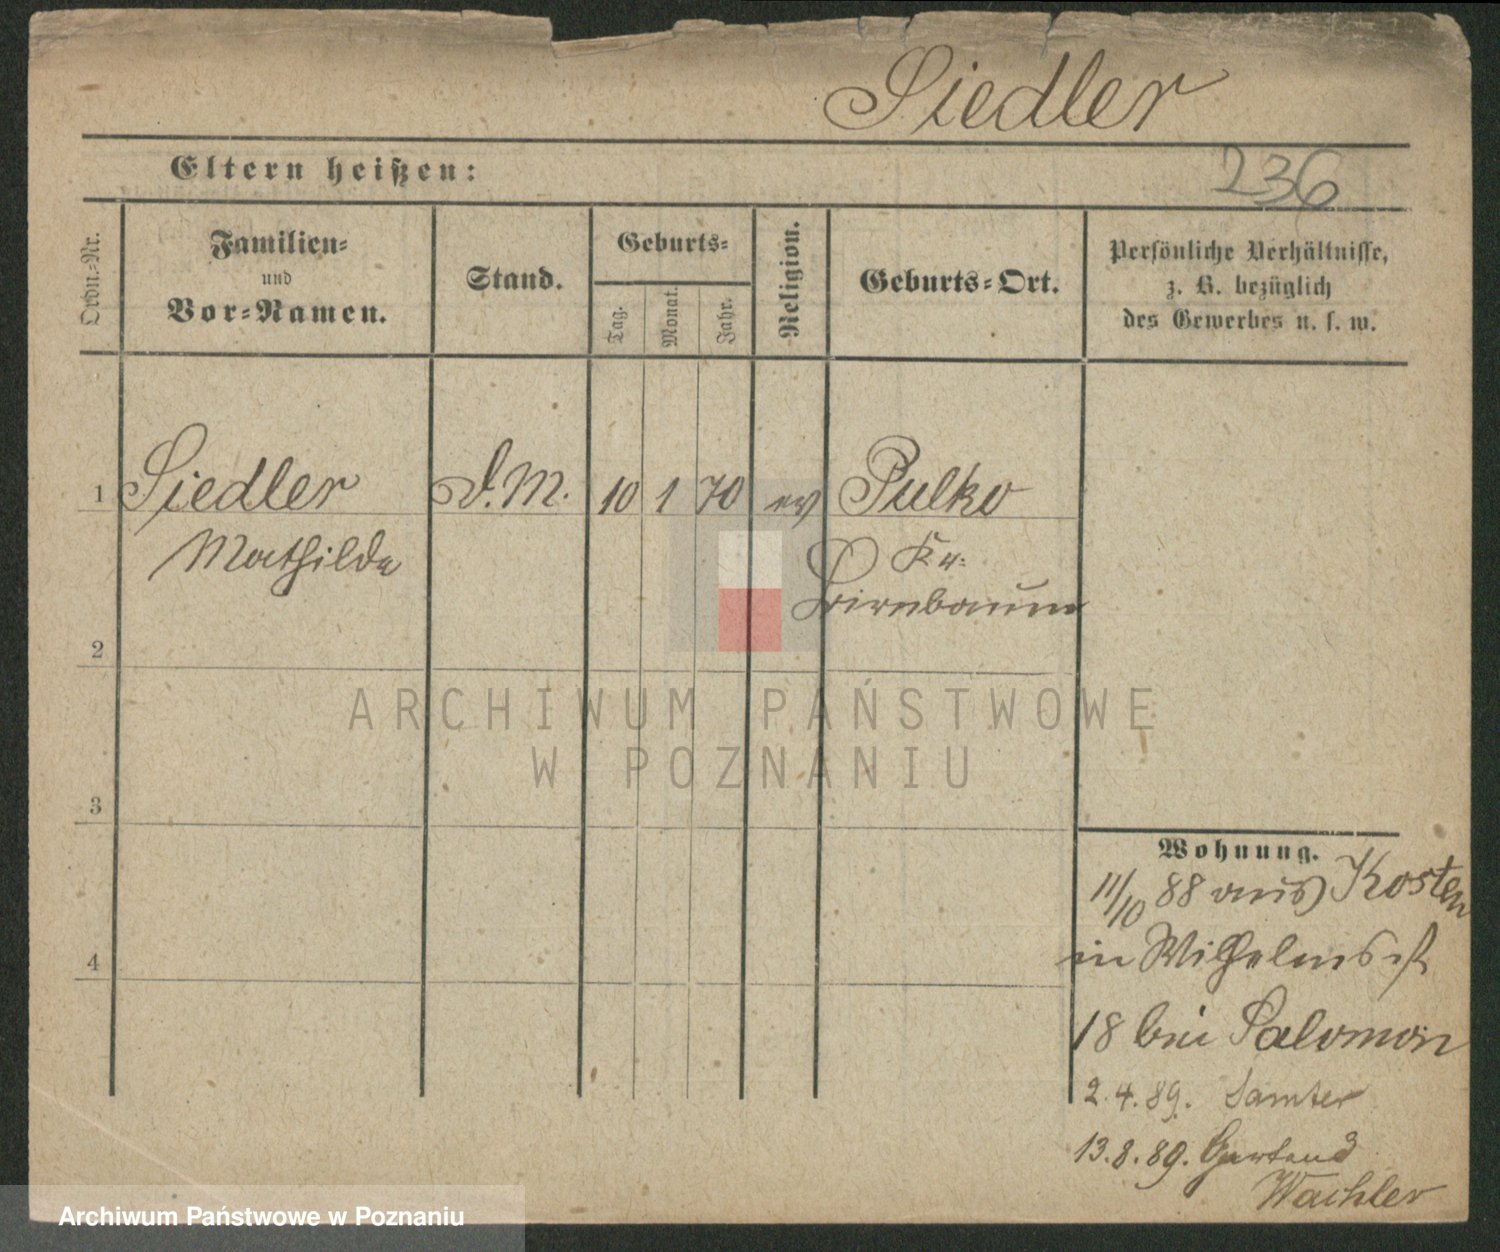 Siedler
Eltern heißen:
236
Ordn.-Nr.
Familien-
und
Vor-Namen.
Stand.
Geburts-
Tag.
Monat.
Jahr.
Religion.
Geburts-Ort.
Persönliche Verhältnisse,
z. B. bezüglich
des Gewerbes u. s. w.
1 Siedler D.M. 10 1 70 ev Pulko
Mathilde Kr.
Birnbaum
2
ARCHIWUM PAŃSTWOWE
W POZNANIU
3
Wohnung.
11/10 88 aus Kosten
in Wilhelmsst
4
18 bei Salomon
2.4.89. Samter
13.8.89. Gartenst
Wachler
Archiwum Państwowe w Poznaniu